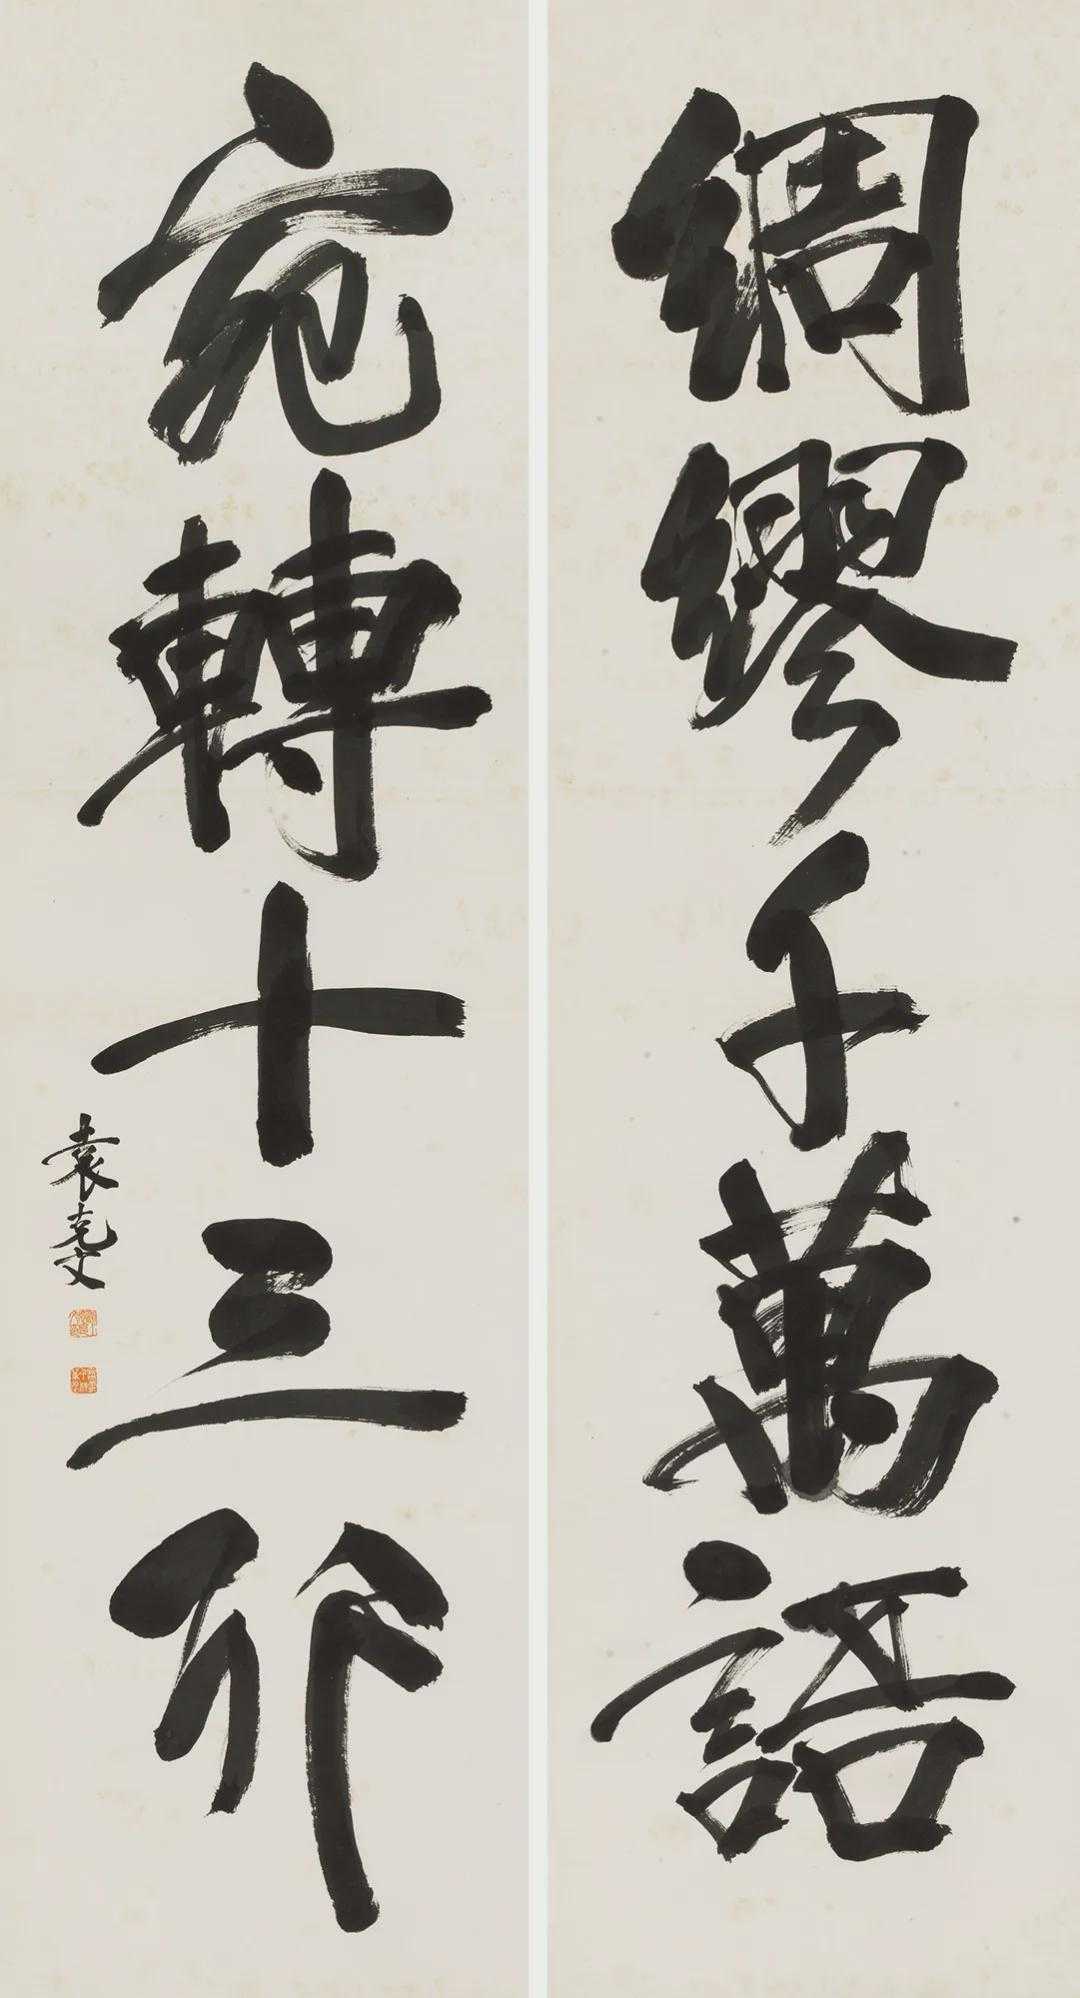 綢繆千萬語
宛轉十三行
袁克文